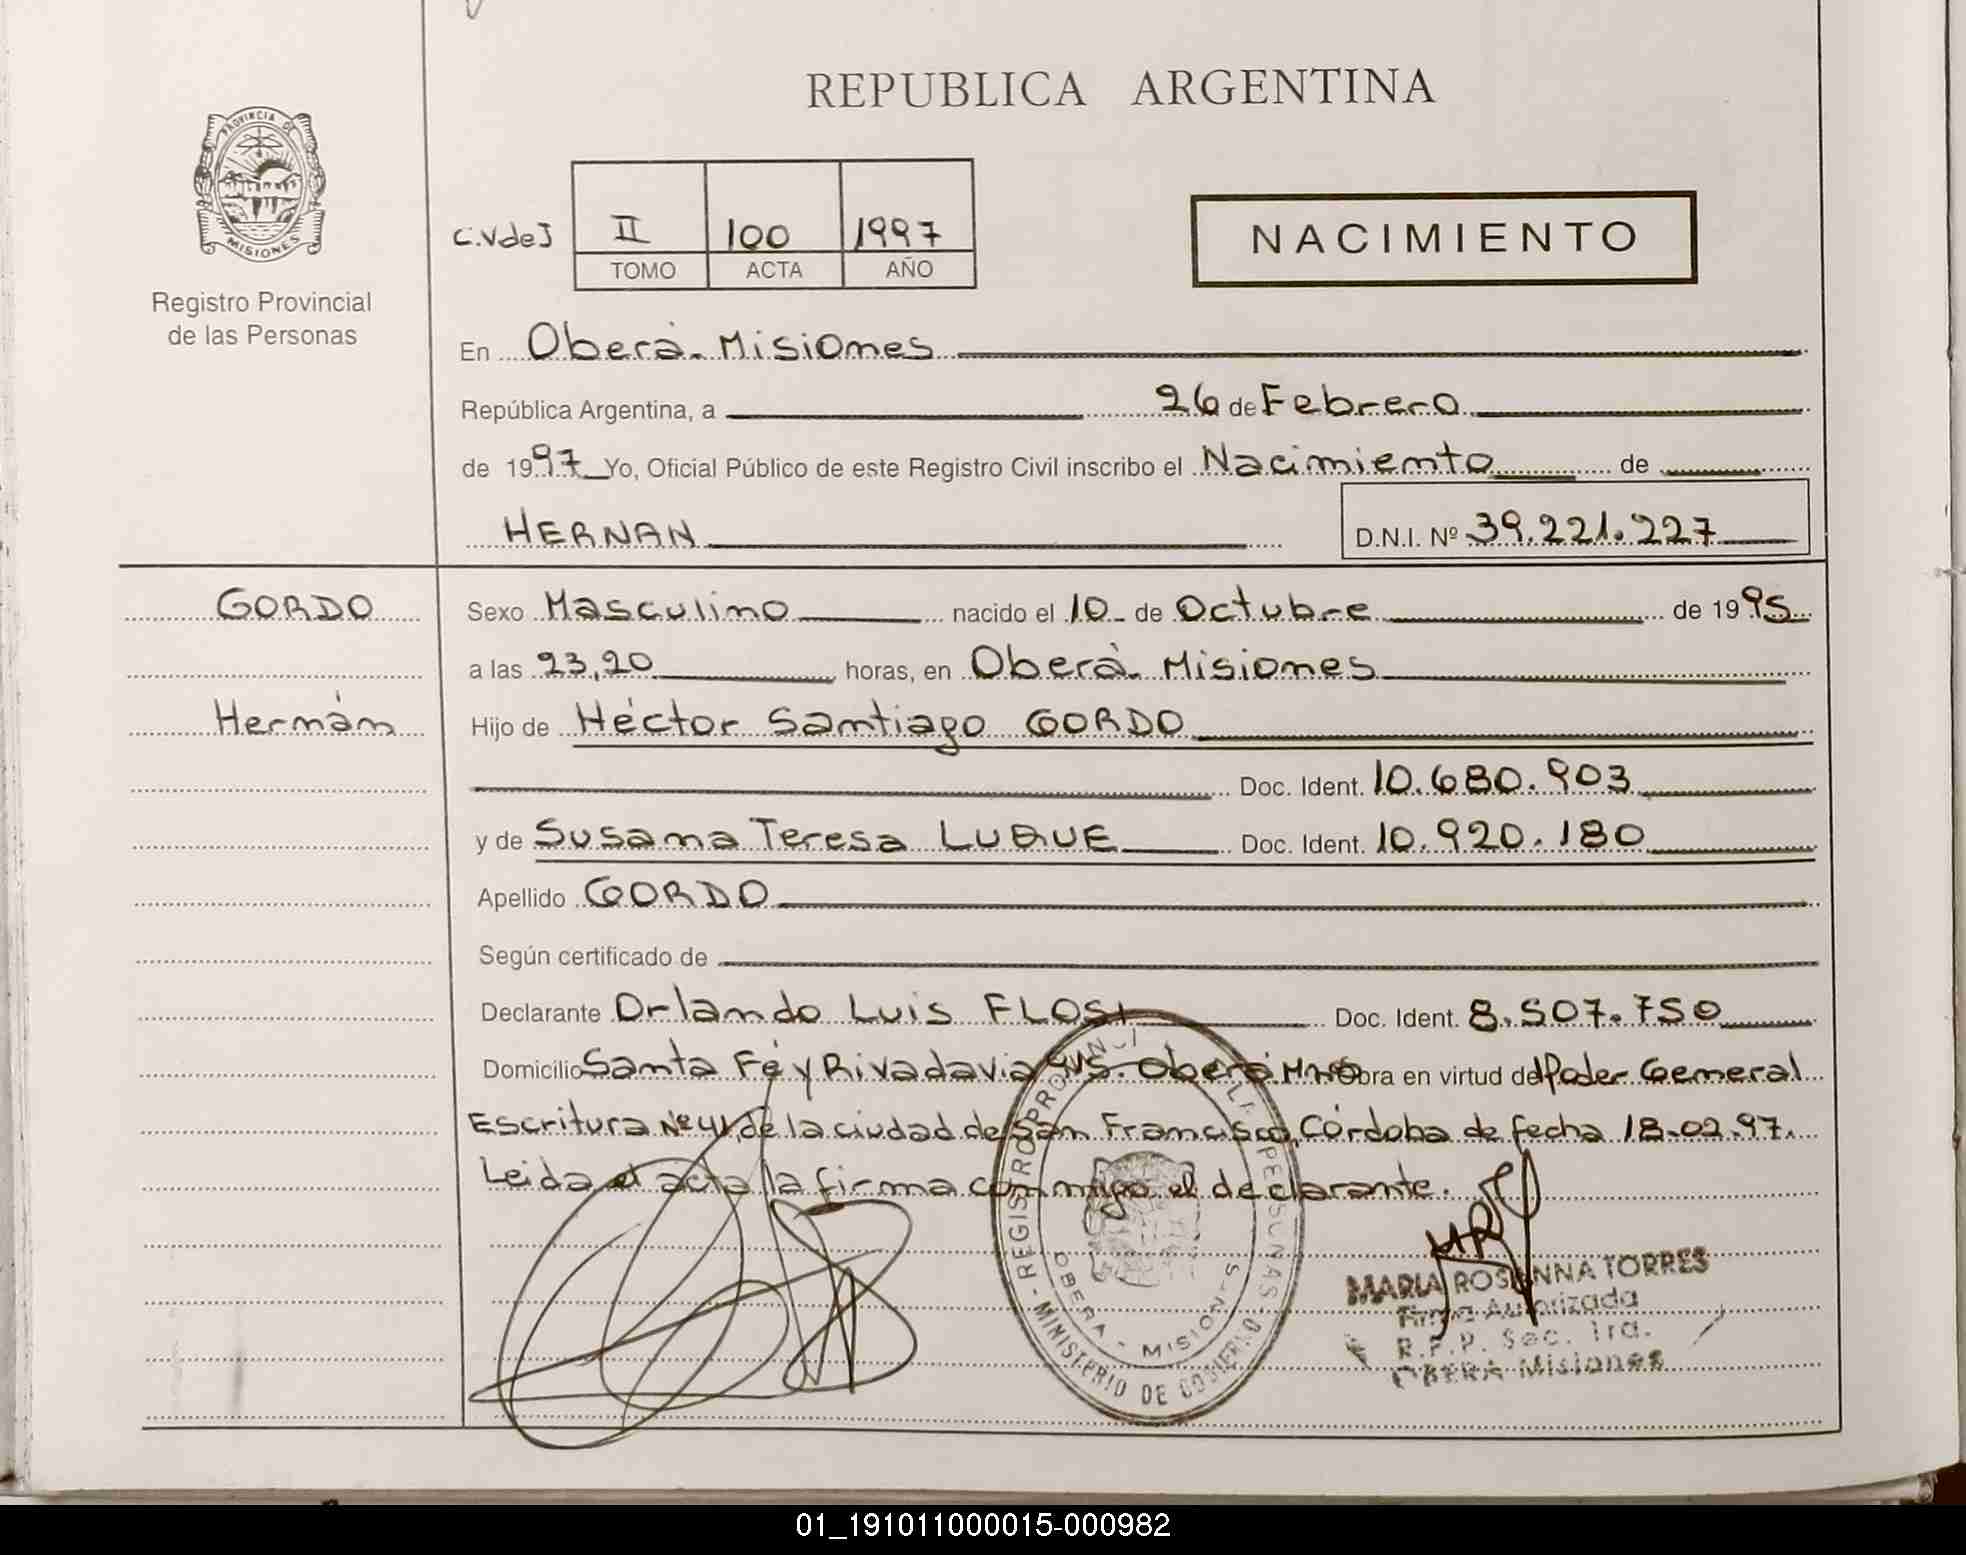 REPUBLICA ARGENTINA
PROVINCIA DE
MISIONES
Registro Provincial
de las Personas
C.VdeJ
II 100 1997
TOMO ACTA AÑO
NACIMIENTO
En Oberá. Misiones
República Argentina, a 26 de Febrero
de 1997 Yo, Oficial Público de este Registro Civil inscribo el Nacimiento de
HERNAN D.N.I. Nº 39.221.227
GORDO
Hernán
Sexo Masculino nacido el 10 de Octubre de 1995
a las 23,20 horas, en Oberá. Misiones
Hijo de Héctor Santiago GORDO
Doc. Ident. 10.680.903
y de Susana Teresa LUQUE Doc. Ident. 10.920.180
Apellido GORDO
Según certificado de
Declarante Orlando Luis FLOSI Doc. Ident. 8.507.750
Domicilio Santa Fé y Rivadavia Oberá Mnes Obra en virtud del Poder General
Escritura Nº 41, de la ciudad de San Francisco, Córdoba de fecha 18-02-97.
Leida el acta la firma conmigo el declarante.
REGISTRO PROVINCIAL DE LAS PERSONAS
MINISTERIO DE GOBIERNO
OBERA - MISIONES
MARIA ROSANNA TORRES
Firma Autorizada
R.P.P. Sec. 1ra.
OBERA-Misiones
01_191011000015-000982